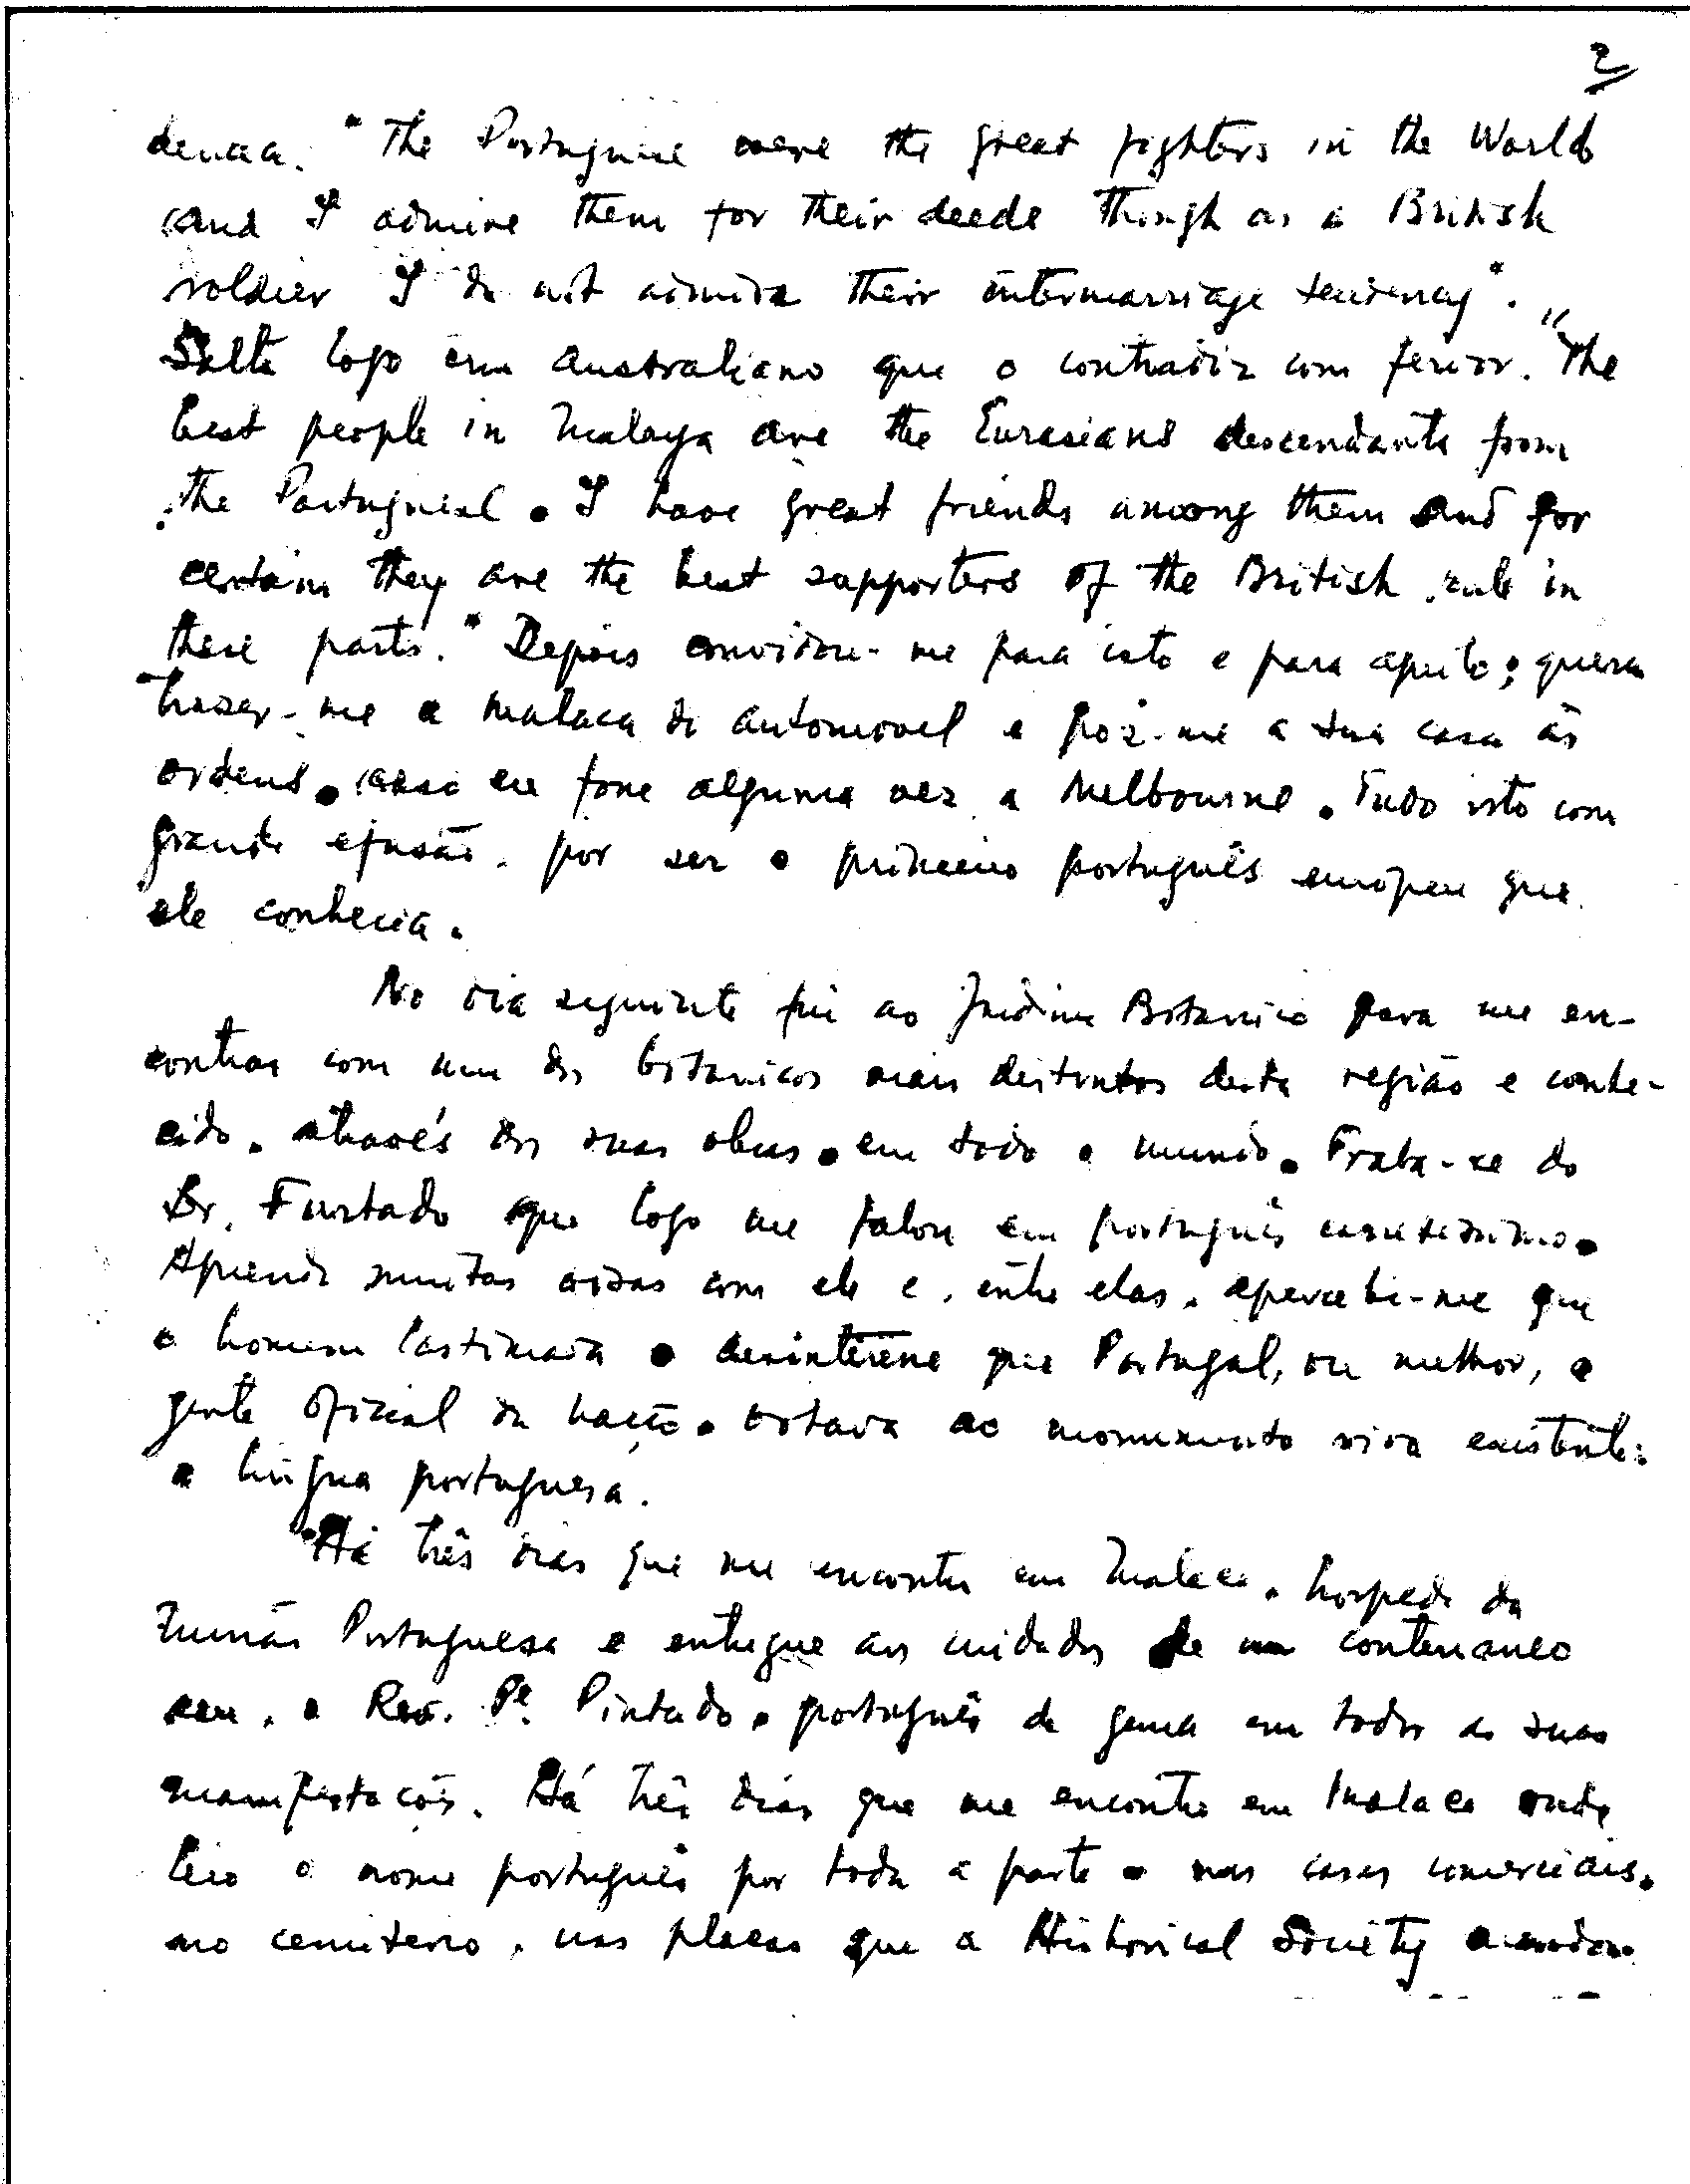 2
"The Portuguese were the great fighters in the World
and I admire them for their deeds though as a British
soldier I do not admire their intermarriage tendency".
Salta logo um australiano que o contradiz com fervor. "The
best people in Malaya are the Eurasians descendants from
the Portuguese. I have great friends among them and for
certain they are the best supporters of the British rule in
these parts." Depois convidou-me para isto e para aquilo; queria
trazer-me a Malaca de automovel e pôz-me a sua casa às
ordens, caso eu fosse alguma vez a Melbourne. Tudo isto com
grande efusão, por ser o primeiro português europeu que
ele conhecia.
No dia seguinte fui ao Jardim Botanico para me en-
contrar com um dos botanicos mais distintos desta região e conhe-
cido, através das suas obras, em todo o mundo. Trata-se do
Dr. Furtado que logo me falou em português correctissimo.
Aprendi muitas coisas com ele e, entre elas, apercebi-me que
o homem lastimava o desinteresse que Portugal, ou melhor, a
gente oficial da nação, votava ao monumento vivo existente:
a lingua portuguesa.
Há três dias que me encontro em Malaca, hospede da
Missão Portuguesa e entregue aos cuidados de um conterraneo
seu, o Rev. Pe. Pintado, português de gema em todas as suas
manifestações. Há três dias que me encontro em Malaca onde
leio o nome português por toda a parte, nas casas comerciais,
no cemiterio, nas placas que a Historical Society